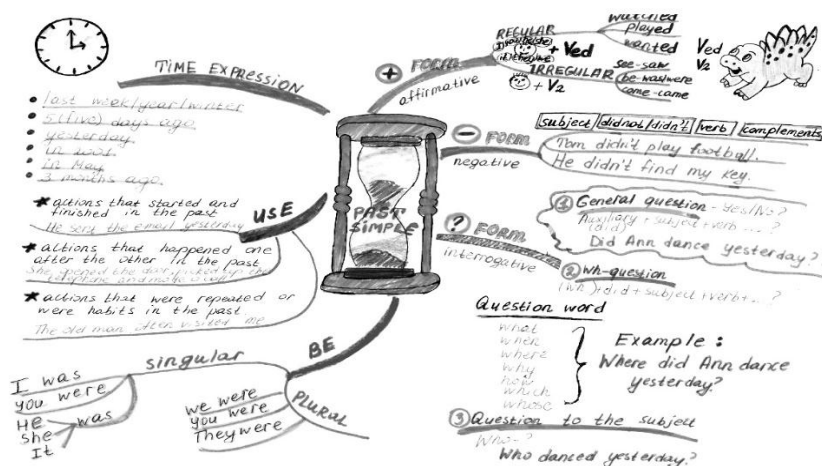 TIME EXPRESSION
last week/year/winter
5 (five) days ago
yesterday
in 2001
in May
3 months ago
USE
actions that started and
finished in the past
He sent the email yesterday
actions that happened one
after the other in the past
She opened the door, picked up the
telephone and made a call
actions that were repeated or
were habits in the past
The old man often visited me
PAST
SIMPLE
BE
singular
I was
you were
He
she
It
was
PLURAL
we were
you were
They were
+ FORM
affirmative
REGULAR
+ Ved
watched
played
wanted
IRREGULAR
+ V2
see-saw
be-was/were
come-came
Ved
V2
- FORM
negative
subject did not/didn't verb complements
Tom didn't play football.
He didn't find my key.
? FORM
interrogative
1 General question - yes/No?
Auxiliary + subject + verb ... ?
(did)
Did Ann dance yesterday?
2 wh-question
(Wh) + did + subject + verb + ... ?
Question word
what
when
where
why
how
which
whose
Example:
Where did Ann dance
yesterday?
3 Question to the subject
Who - ?
Who danced yesterday?